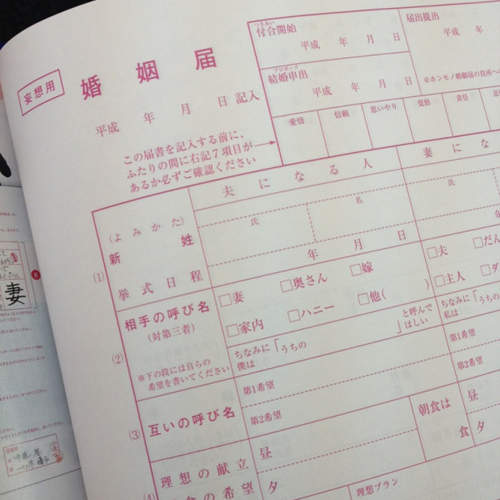 妄想用
婚姻届
平成 年 月 日 記入
この届書を記入する前に、
ふたりの間に右記7項目が
あるか必ずご確認ください
付合開始
平成 年 月 日
届出提出
平成
結婚申出
平成 年 月 日
※ホンモノ婚姻届の役所への
愛情
信頼
思いやり
覚悟
責任
夫になる人
妻にな
(よみかた)
氏
名
氏
(1)
新姓
年 月 日
挙式日程
相手の呼び名
(対第三者)
□妻 □奥さん □嫁
□家内 □ハニー □他( )
□夫 □だん
□主人 □ダ
(2)
※下の段には自らの
希望を書いてください
ちなみに「うちの
僕は
」と呼んで
ほしい
ちなみに「うち
私は
(3)
互いの呼び名
第1希望
第2希望
第1希望
第2希望
理想の献立
昼
夕
朝食は
食
昼
夕
の希望
理想プラン
妻